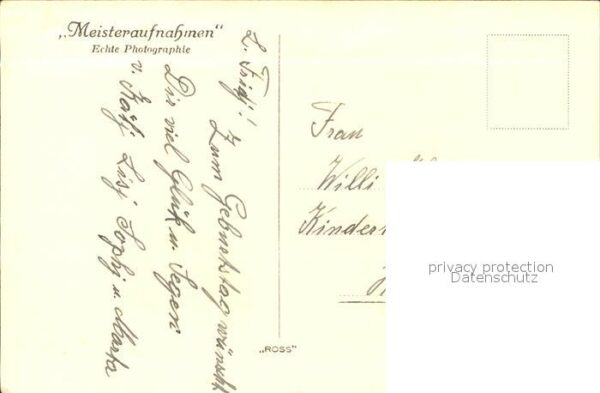 „Meisteraufnahmen“
Echte Photographie
L. Fridj!
Zum Geburtstag wünscht
Dir viel Glük u. Segen
v. Kätj Lisj Sophj u. Marta
Frau
Willi
Kinder
privacy protection
Datenschutz
„ROSS“